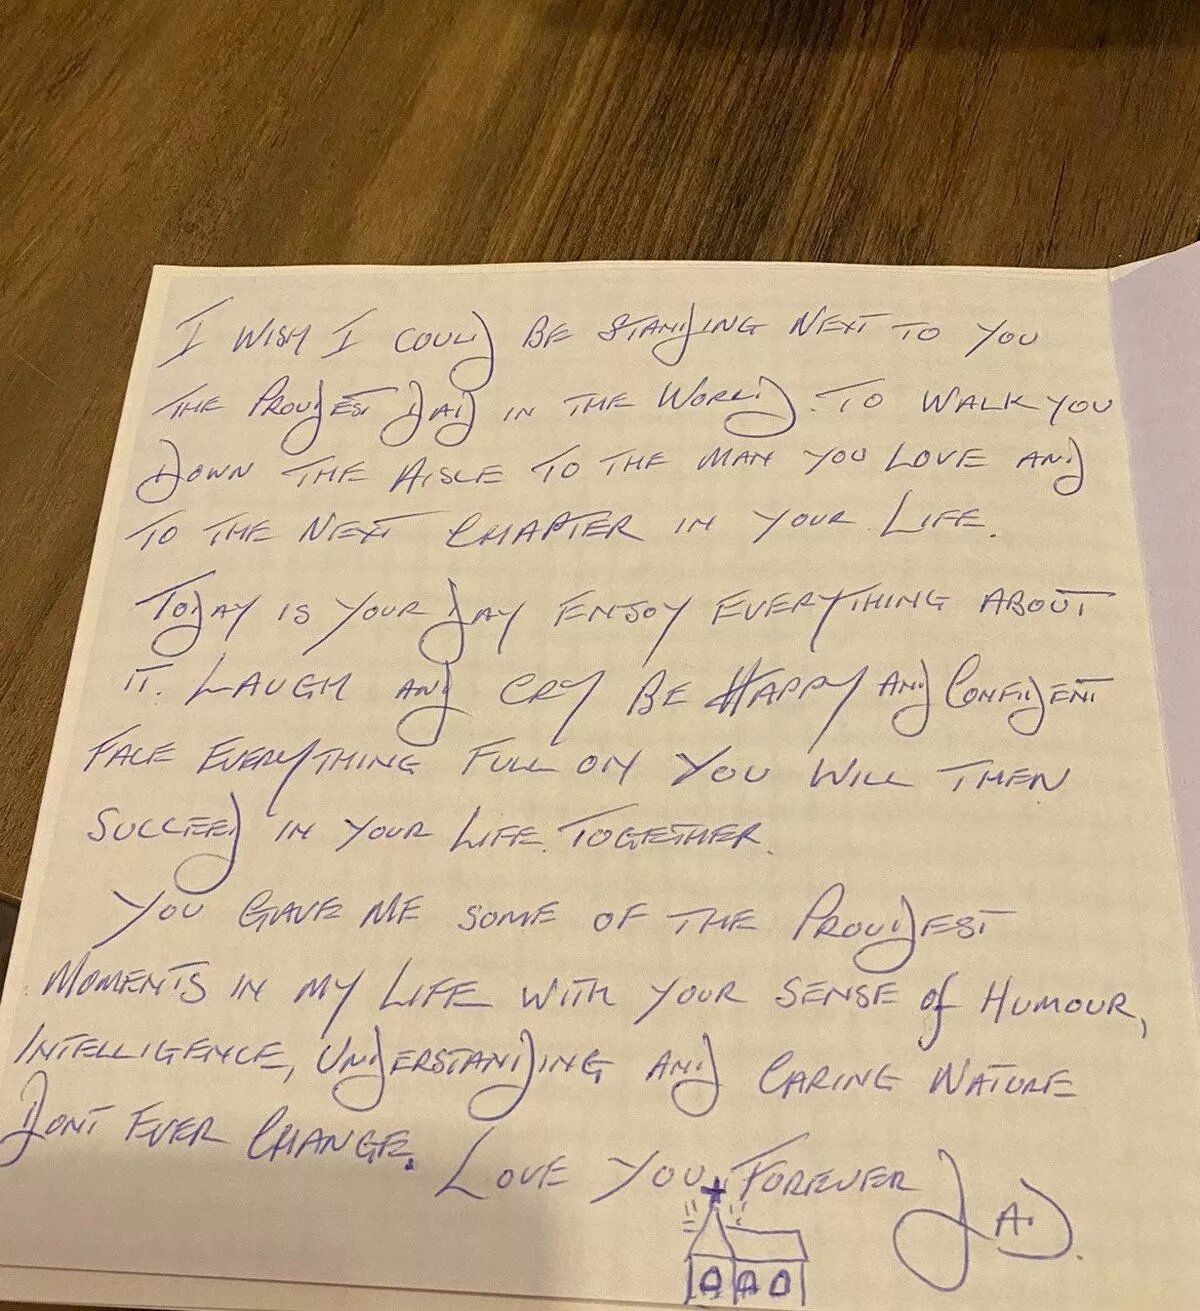 I WISH I COULD BE STANDING NEXT TO YOU
THE PROUDEST DAD IN THE WORLD. TO WALK YOU
DOWN THE AISLE TO THE MAN YOU LOVE AND
TO THE NEXT CHAPTER IN YOUR LIFE.
TODAY IS YOUR DAY ENJOY EVERYTHING ABOUT
IT. LAUGH AND CRY BE HAPPY AND CONFIDENT
FACE EVERYTHING FULL ON YOU WILL THEN
SUCCEED IN YOUR LIFE TOGETHER.
YOU GAVE ME SOME OF THE PROUDEST
MOMENTS IN MY LIFE WITH YOUR SENSE of HUMOUR,
INTELLIGENCE, UNDERSTANDING AND CARING NATURE
DONT EVER CHANGE. LOVE YOU FOREVER
DAD.